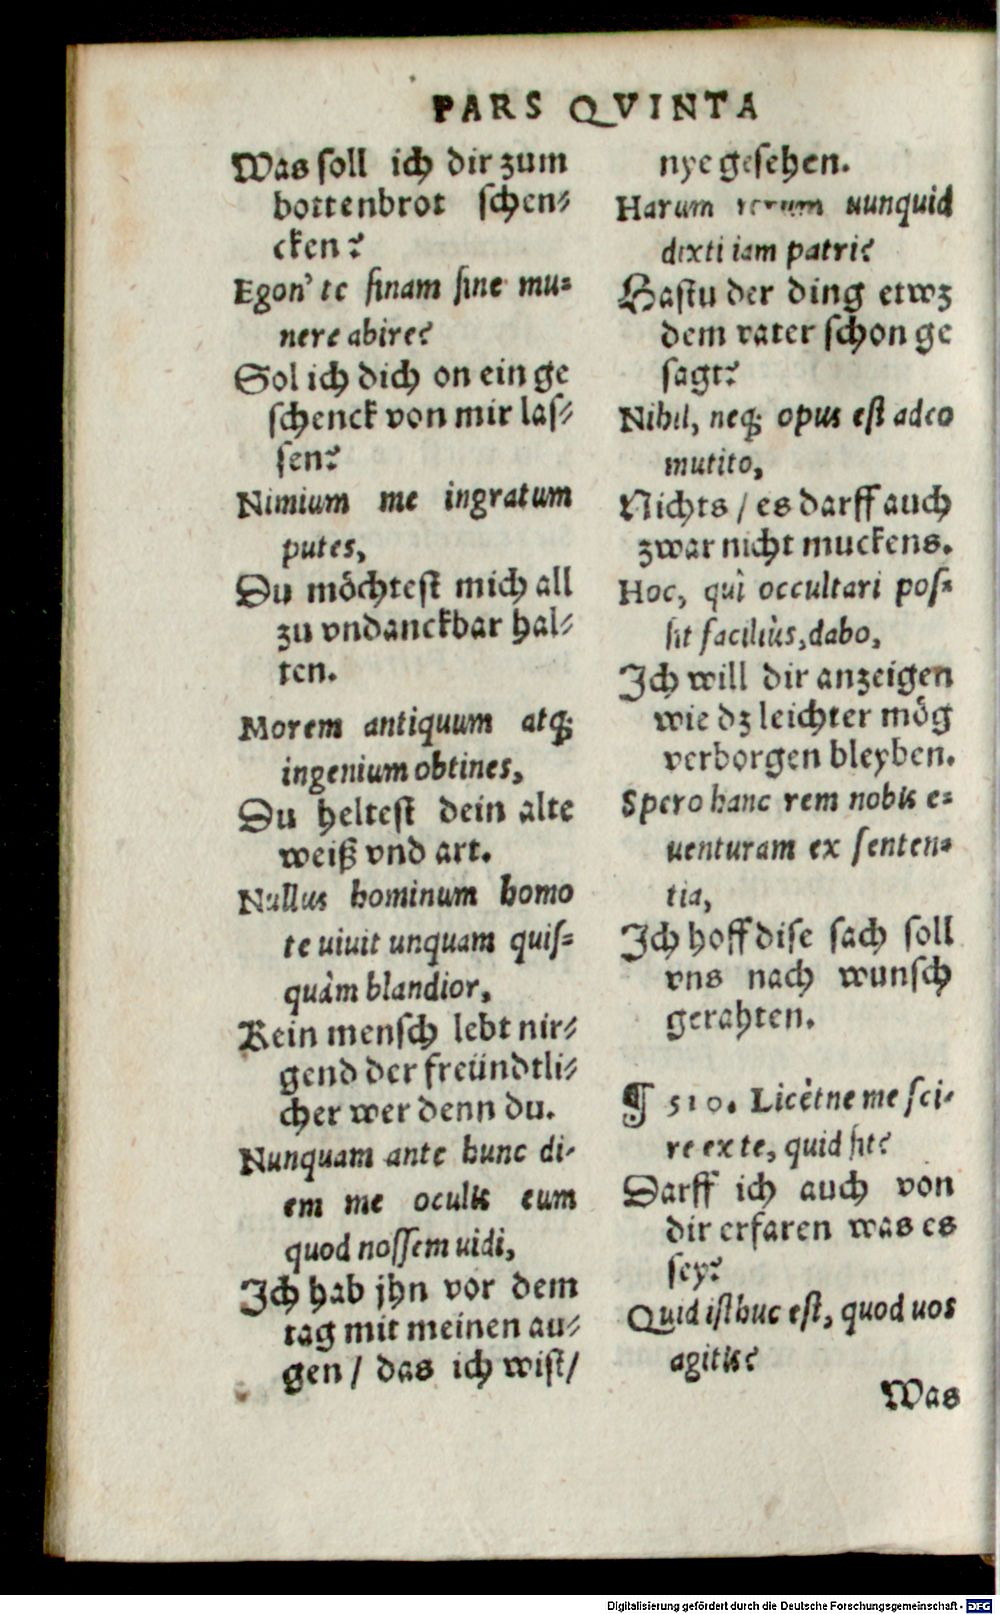 PARS QVINTA
Was soll ich dir zum
bottenbrot schen⸗
cken?
Egon' te sinam sine mu⸗
nere abire?
Sol ich dich on ein ge
schenck von mir las⸗
sen?
Nimium me ingratum
putes,
Du möchtest mich all
zu vndanckbar hal⸗
ten.
Morem antiquum atq;
ingenium obtines,
Du heltest dein alte
weiß vnd art.
Nullus hominum homo
te uiuit unquam quis⸗
quàm blandior,
Kein mensch lebt nir⸗
gend der freündtli⸗
cher wer denn du.
Nunquam ante hunc di⸗
em me oculis eum
quod nossem uidi,
Ich hab jhn vor dem
tag mit meinen au⸗
gen / das ich wist /
nye gesehen.
Harum rerum nunquid
dixti iam patri?
Hastu der ding etwz
dem vater schon ge
sagt?
Nihil, neq; opus est adeo
mutito,
Nichts / es darff auch
zwar nicht muckens.
Hoc, quì occultari pos⸗
sit faciliùs, dabo,
Ich will dir anzeigen
wie dz leichter mög
verborgen bleyben.
Spero hanc rem nobis e⸗
uenturam ex senten⸗
tia,
Ich hoff dise sach soll
vns nach wunsch
gerahten.
¶ 510. Licètne me sci⸗
re ex te, quid sit?
Darff ich auch von
dir erfaren was es
sey?
Quid isthuc est, quod uos
agitis?
Was
Digitalisierung gefördert durch die Deutsche Forschungsgemeinschaft - DFG